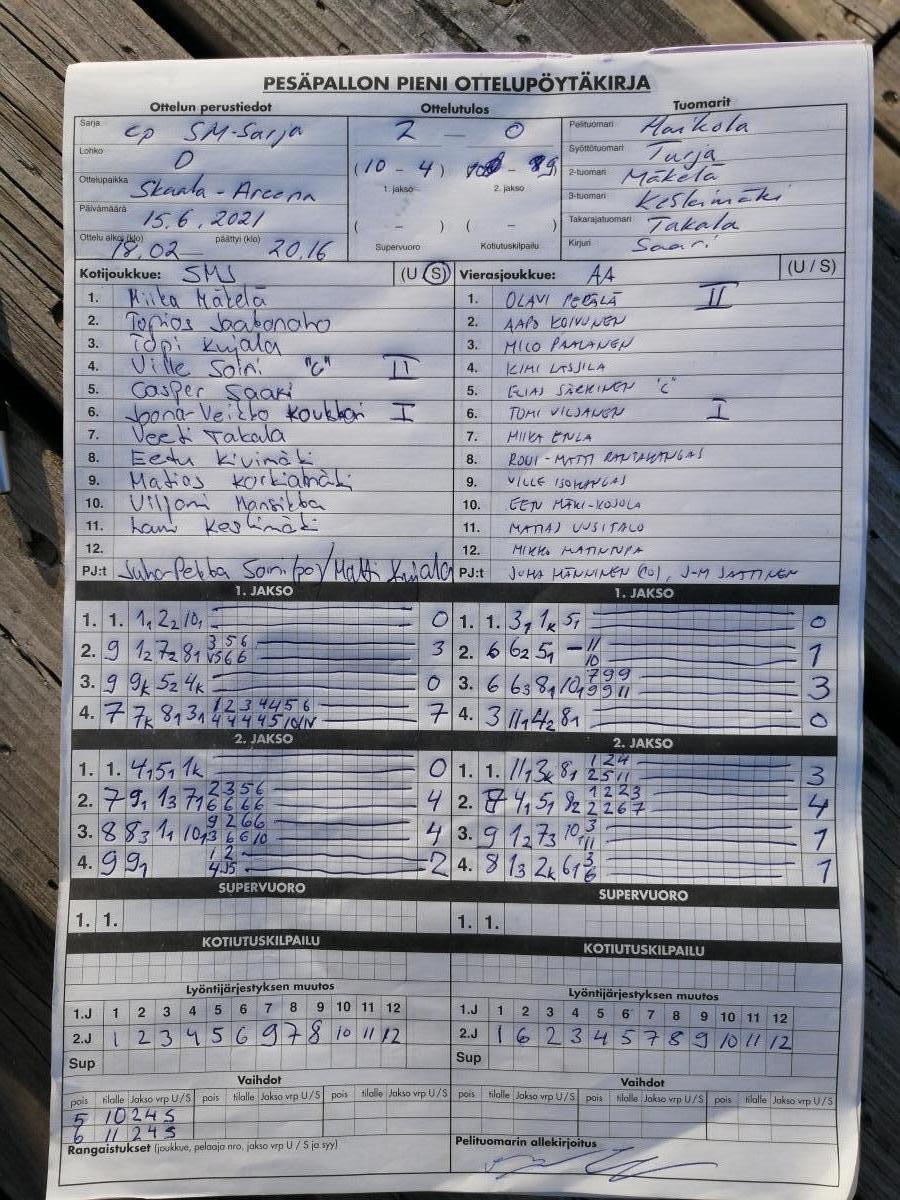 PESÄPALLON PIENI OTTELUPÖYTÄKIRJA
Ottelun perustiedot Ottelutulos Tuomarit
Sarja SM-Sarja
Lohko D
Ottelupaikka Skaala-Areena
Päivämäärä 15.6.2021
Ottelu alkoi (klo) 18.02 päättyi (klo) 20.16
2 — 0
(10 - 4)
1. jakso 2. jakso
( – ) ( – )
Supervuoro Kotiutuskilpailu
Pelituomari Marikola
Syöttötuomari Turja
2-tuomari Mäkelä
3-tuomari Keskimäki
Takarajatuomari Takala
Kirjuri Saari
Kotijoukkue: SMJ (U S)
1. Miika Mäkelä
2. Topias
3. Topi Kujala
4. Ville Soini "C" II
5. Casper Saari
6. Joona-Veikko I
7. Veeti Takala
8. Eetu Kivimäki
9. Matias
10. Viljami Mansikka
11. Keskimäki
12.
PJ:t Juha-Pekka Soini (po) / Matti Kujala
Vierasjoukkue: AA (U / S)
1. OLAVI PERÄLÄ II
2. AAPO KOIVUNEN
3. MILO PAALANEN
4. KIMI LASSILA
5. ELIAS SÄRKINEN "C"
6. TOMI VILJANEN I
7. MIIKA ENLA
8. ROUI-MATTI RANTAKANGAS
9. VILLE ISOKANGAS
10. EETU MÄKI-KOJOLA
11. MATIAS UUSITALO
12. MIKKO MATINTUPA
PJ:t JUHA MÄNNINEN (PO), J-M SAATTINEN
1. JAKSO
1. 1. 1₁ 2₂ 10₁ 0
2. 9 1₂ 7₂ 8₁ 3
3. 9 9k 5₂ 4k 0
4. 7 7k 8₃ 3₁ 7
1. JAKSO
1. 1. 3₁ 1k 5₁ 0
2. 6 6₂ 5₁ – 11 10 1
3. 6 6₃ 8₁ 10₁ 799 9911 3
4. 3 11₁ 4₂ 8₁ 0
2. JAKSO
1. 1. 4₁ 5₁ 1k 0
2. 7 9₁ 1₃ 7₁ 2356 6666 4
3. 8 8₃ 1₁ 10₁ 9266 36610 4
4. 9 9₁ 2
2. JAKSO
1. 1. 11₁ 3k 8₁ 124 2511 3
2. 4₁ 5₁ 8₂ 1223 2267 4
3. 9 1₂ 7₃ 10₁ 3 11 1
4. 8 1₃ 2k 6₁ 3 6 1
SUPERVUORO SUPERVUORO
1. 1. 1. 1.
KOTIUTUSKILPAILU KOTIUTUSKILPAILU
Lyöntijärjestyksen muutos
1.J 1 2 3 4 5 6 7 8 9 10 11 12
2.J 1 2 3 4 5 6 9 7 8 10 11 12
Sup
Lyöntijärjestyksen muutos
1.J 1 2 3 4 5 6 7 8 9 10 11 12
2.J 1 6 2 3 4 5 7 8 9 10 11 12
Sup
Vaihdot Vaihdot
pois tilalle Jakso vrp U / S pois tilalle Jakso vrp U / S pois tilalle Jakso vrp U / S
5 10 2 4 S
6 11 2 4 S
pois tilalle Jakso vrp U / S pois tilalle Jakso vrp U / S pois tilalle Jakso vrp U / S
Rangaistukset (joukkue, pelaaja nro, jakso vrp U / S ja syy)
Pelituomarin allekirjoitus